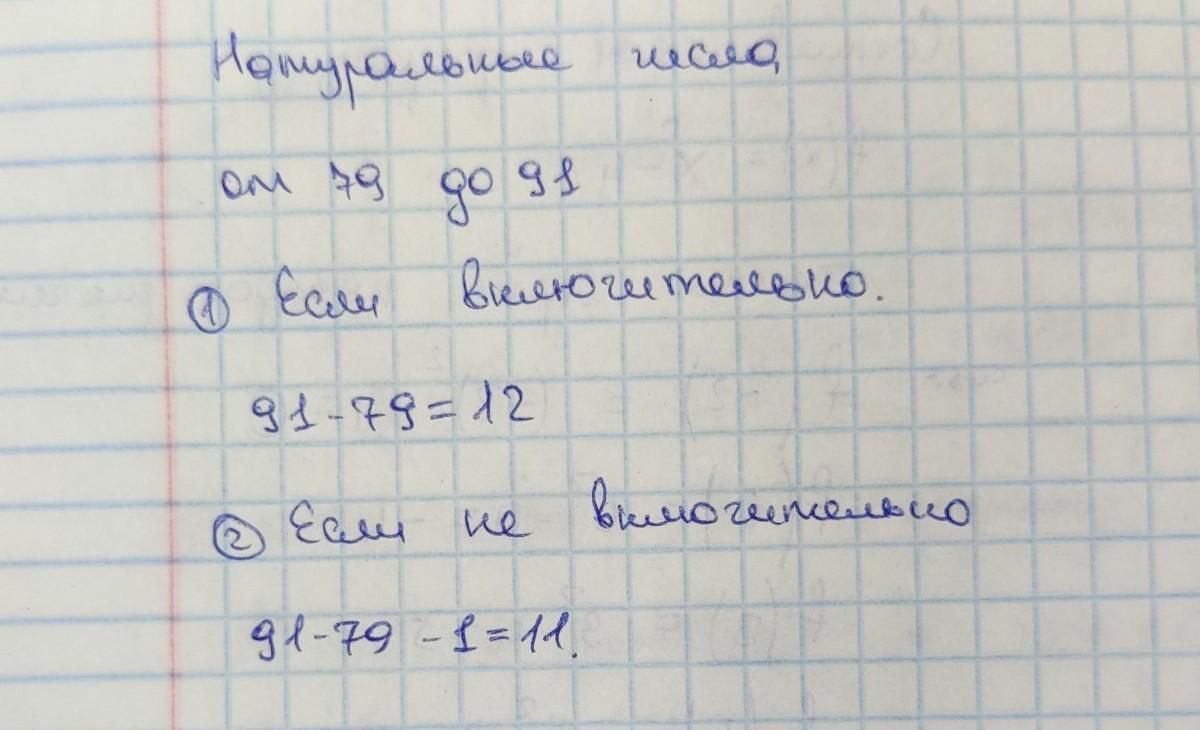 Натуральные числа
от 79 до 91
① Если включительно.
91-79=12
② Если не включительно
91-79-1=11.